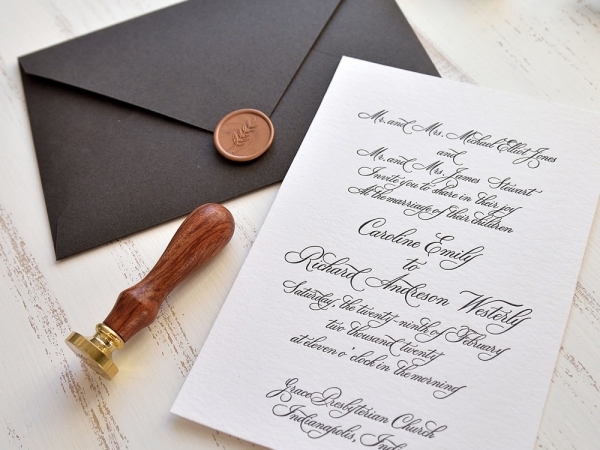 Mr. and Mrs. Michael Elliot Jones
and
Mr. and Mrs. James Stewart
Invite you to share in their joy
At the marriage of their children
Caroline Emily
to
Richard Andreson Westerly
Saturday, the twenty-ninth of February
two thousand twenty
at eleven o'clock in the morning
Grace Presbyterian Church
Indianapolis, Indi